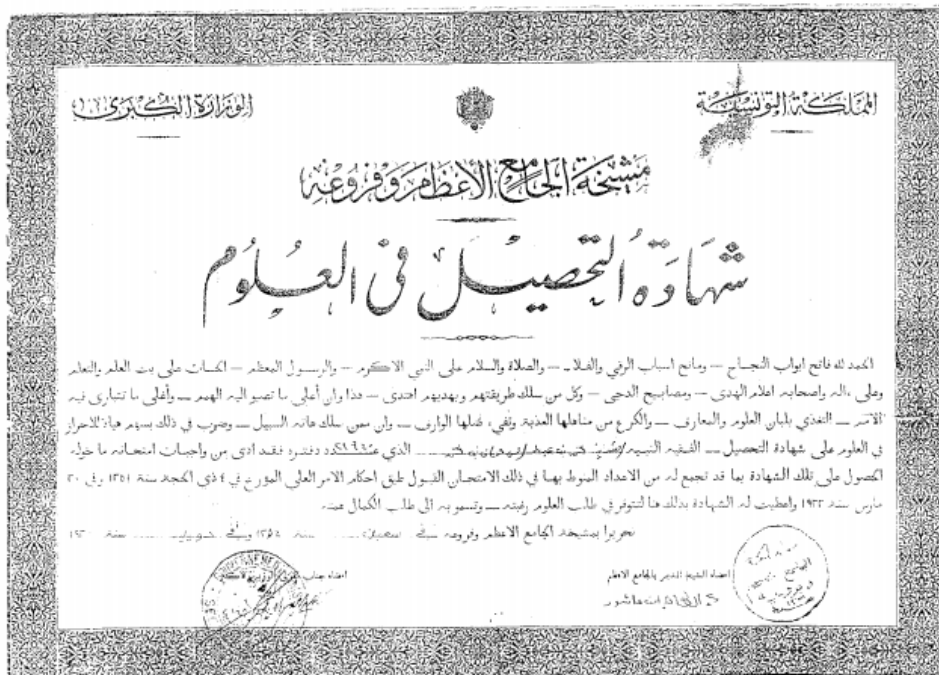 المملكة التونسية
الوزارة الكبرى
مشيخة الجامع الأعظم وفروعه
شهادة التحصيل في العلوم
الحمد لله فاتح ابواب النجاح — ومانح اسباب الرقي والفلاح — والصلاة والسلام على النبي الاكرم — والرسول المعظم — الحاث على بث العلم والتعلم
وعلى ءاله واصحابه اعلام الهدى — ومصابيح الدجى — وكل من سلك طريقتهم وبهديهم اهتدى — هذا وان أعلى ما تصبو اليه الهمم — وأغلى ما تتبارى فيه
الامم — التغذي بلبان العلوم والمعارف — والكرع من مناهلها العذبة وتفيء ظلها الوارف — وان ممن سلك هاته السبيل — وضرب في ذلك بسهم هيأه للاحراز
في العلوم على شهادة التحصيل — الفقيه النبيه الذي عدد دفتره فقد ادى من واجبات امتحانه ما خوله
الحصول على تلك الشهادة بما قد تجمع له من الاعداد المنوط بها في ذلك الامتحان القبول طبق احكام الامر العلي المؤرخ في ٤ ذي الحجة سنة ١٣٥١ وفي ٣٠
مارس سنة ١٩٣٣ واعطيت له الشهادة بذلك هنا لتتوفر في طلب العلوم رغبته — وتسمو به الى طلب الكمال همته
تحريرا بمشيخة الجامع الاعظم وفروعه في سنة وفي سنة
امضاء الشيخ المدير بالجامع الاعظم
امضاء جناب